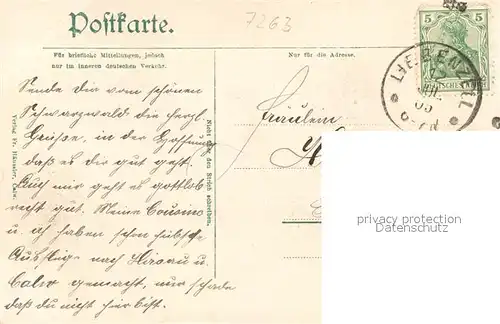 Postkarte.
7263
Für briefliche Mitteilungen, jedoch
nur im inneren deutschen Verkehr.
Nur für die Adresse.
5 5
DEUTSCHES REICH
LIEBENZELL
Sende Dir vom schönen
Schwarzwald die herzl.
Grüße, in der Hoffnung
daß es dir gut geht.
Auch mir geht es gottlob
recht gut. Meine Cousine
u. ich haben schon hübsche
Ausflüge nach Hirsau u.
Calw gemacht, nur schade
daß du nicht hier bist.
Verlag Fr. Häussler, Calw.
Nicht über den Strich schreiben.
Fräulein
privacy protection
Datenschutz